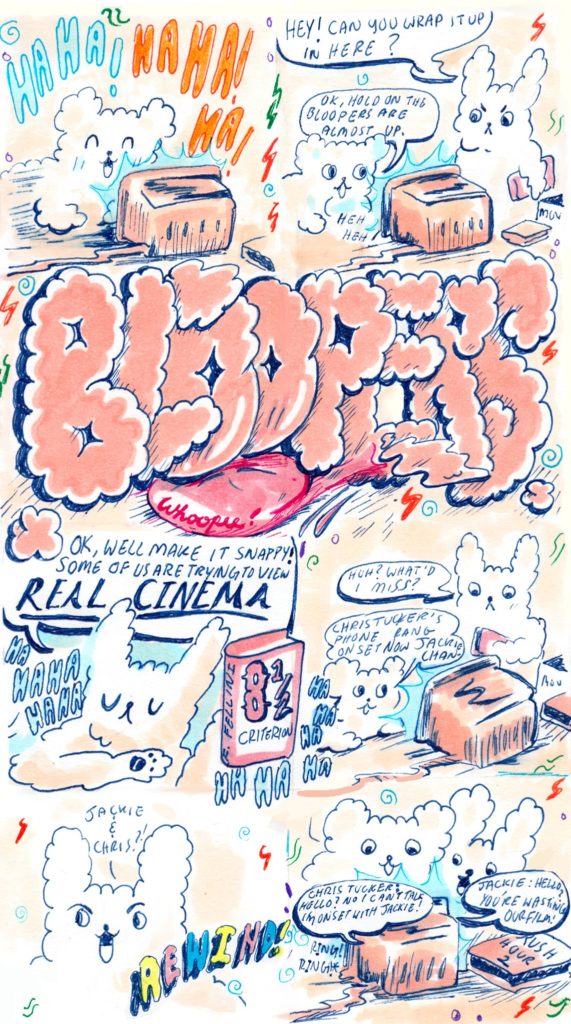 HAHA!
HAHA!
HA!
HEY! CAN YOU WRAP IT UP
IN HERE?
OK, HOLD ON THE
BLOOPERS ARE
ALMOST UP.
HEH
HEH
MOV
BLOOPERS
Whoopee!
OK, WELL MAKE IT SNAPPY!
SOME OF US ARE TRYING TO VIEW
REAL CINEMA
HA
HAHA
HAHA
F. FELLINI
8 1/2
CRITERION
HA
HA
HA
HA
HA HA
HUH? WHAT'D
I MISS?
CHRIS TUCKER'S
PHONE RANG
ON SET NOW JACKIE
CHAN-
MOV
JACKIE
&
CHRIS?!
REWIND!
CHRIS TUCKER:
HELLO? NO I CAN'T TALK
I'M ON SET WITH JACKIE!
RING!
RING!
JACKIE: HELLO,
YOU'RE WASTING
OUR FILM!
RUSH
HOUR
2